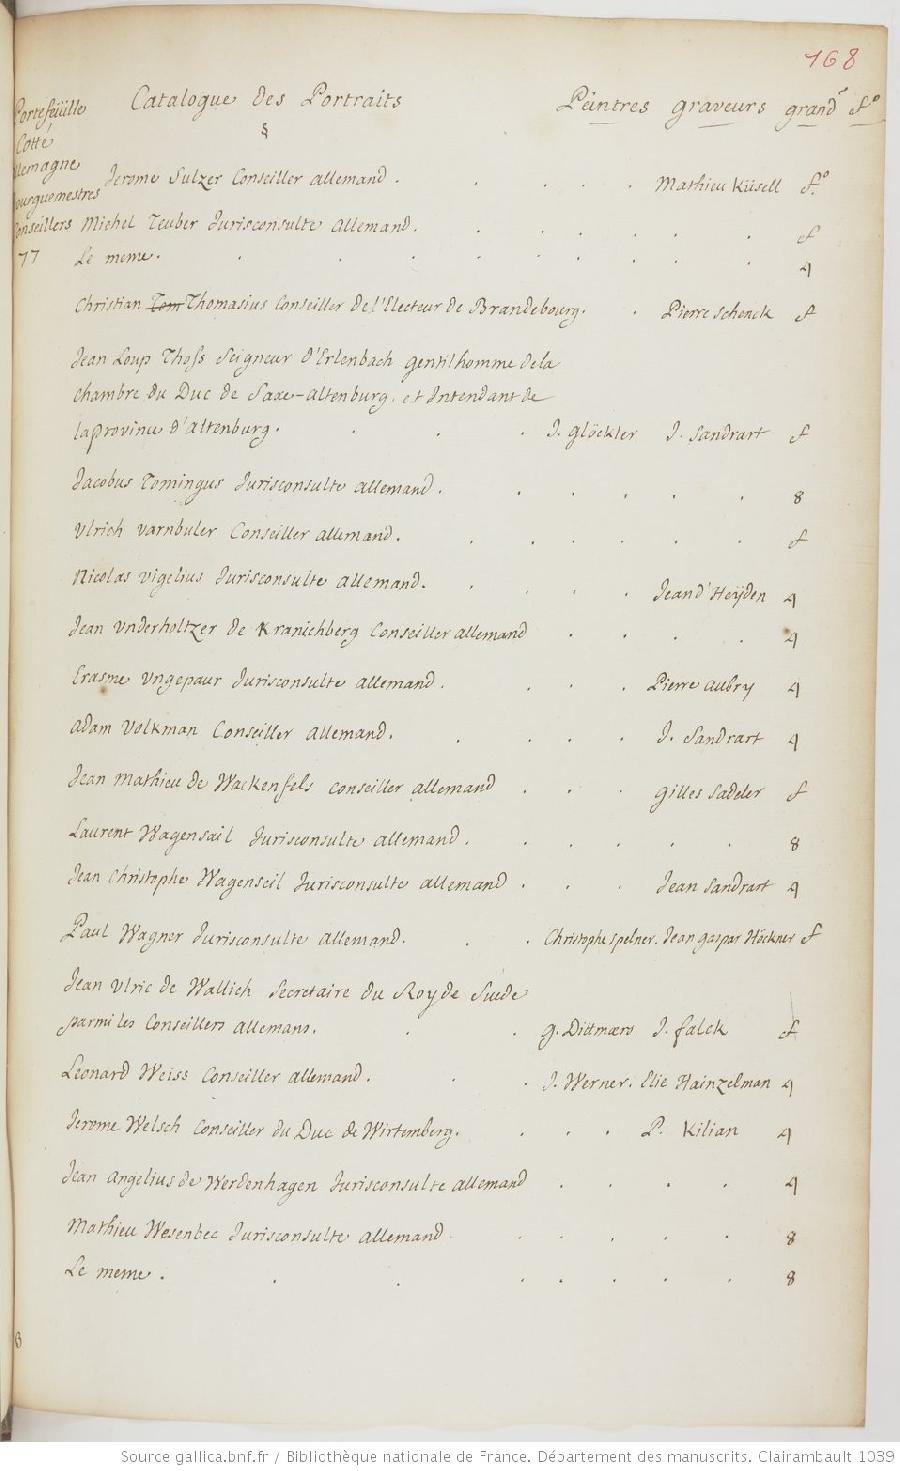 168
Catalogue des Portraits Peintres graveurs grandr fo
§
Portefeüille
Cotté
allemagne
bourguemestres
Conseillers
77
Jerome Sulzer Conseiller allemand . Mathieu Küsell fo.
Michel Teuber Jurisconsulte allemand. f
Le meme. 4
Christian Tom Thomasius Conseiller de l'Electeur de Brandebourg. Pierre Schenck f
Jean Loup Thoss Seigneur d'Erlenbach gentilhomme dela
chambre du Duc de Saxe-altenburg, et Intendant de
la province d'altenburg. J. glöckler J. Sandrart f
Jacobus Tomingus Jurisconsulte allemand. 8
Ulrich Varnbuler Conseiller allemand. f
Nicolas Vigelius Jurisconsulte allemand. Jean d'Heÿden 4
Jean Underholtzer de Kranichberg Conseiller allemand 4
Erasme Ungepaur Jurisconsulte allemand. Pierre aubry 4
adam Volkman Conseiller allemand. J. Sandrart 4
Jean Mathieu de Wackenfels conseiller allemand gilles Sadeler f
Laurent Wagensail Jurisconsulte allemand. 8
Jean Christophe Wagenseil Jurisconsulte allemand. Jean Sandrart 4
Paul Wagner Jurisconsulte allemand. Christophe Spelner. Jean gaspar Höckner f
Jean Ulric de Wallich Secretaire du Roy de Suede
parmi les Conseillers allemans. g. Dittmaers J. falck f
Leonard Weiss Conseiller allemand. J. Werner. Elie Hainzelman 4
Jerome Welsch Conseiller du Duc de Wirtemberg. P. Kilian 4
Jean angelius de Werdenhagen Jurisconsulte allemand 4
Mathieu Wesenbec Jurisconsulte allemand 8
Le meme . 8
Source gallica.bnf.fr / Bibliothèque nationale de France. Département des manuscrits. Clairambault 1039